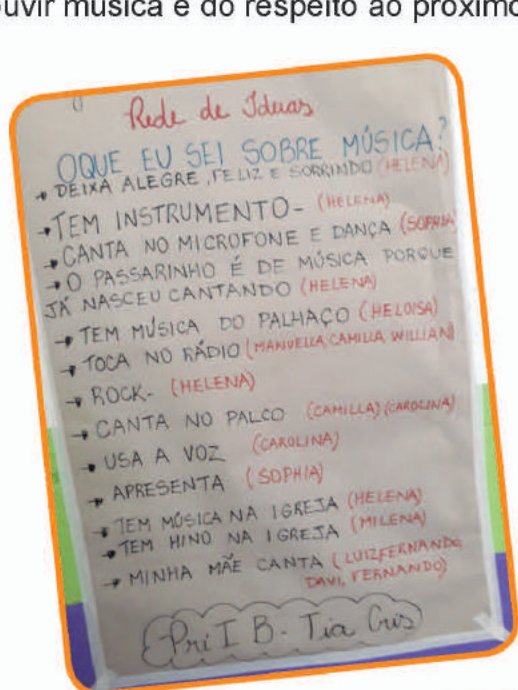 ouvir música e do respeito ao próximo
Rede de Ideias
OQUE EU SEI SOBRE MÚSICA?
→ DEIXA ALEGRE, FELIZ E SORRINDO (HELENA)
→ TEM INSTRUMENTO - (HELENA)
→ CANTA NO MICROFONE E DANÇA (SOPHIA)
→ O PASSARINHO É DE MÚSICA PORQUE
JÁ NASCEU CANTANDO (HELENA)
→ TEM MÚSICA DO PALHAÇO (HELOISA)
→ TOCA NO RÁDIO (MANUELLA, CAMILLA, WILLIAN)
→ ROCK - (HELENA)
→ CANTA NO PALCO (CAMILLA) (CAROLINA)
→ USA A VOZ (CAROLINA)
→ APRESENTA (SOPHIA)
→ TEM MÚSICA NA IGREJA (HELENA)
→ TEM HINO NA IGREJA (MILENA)
→ MINHA MÃE CANTA (LUIZ FERNANDO,
DAVI, FERNANDO)
Pri I B - Tia Cris